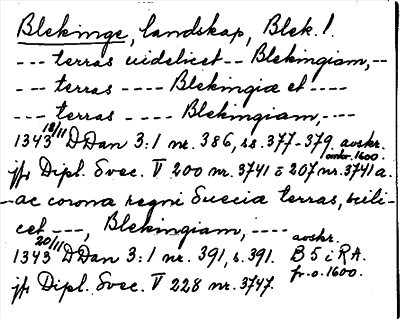 Blekinge, landskap, Blek. l.
--- terras uidelicet -- Blekingiam, --
--- terras ---- Blekingiæ et ----
--- terras ---- Blekingiam, ----
1343 18/11 DDan 3:1 nr. 386, ss. 377-379. avskr. omkr. 1600.
jfr Dipl. Svec. V 200 nr. 3741 o 207 nr. 3741 a.
-- ac corona regni Suecia terras, scili-
cet ---, Blekingiam, ----
1343 20/11 DDan 3:1 nr. 391, s. 391. avskr. B 5 i RA. fr. o. 1600.
jfr Dipl. Svec. V 228 nr. 3747.